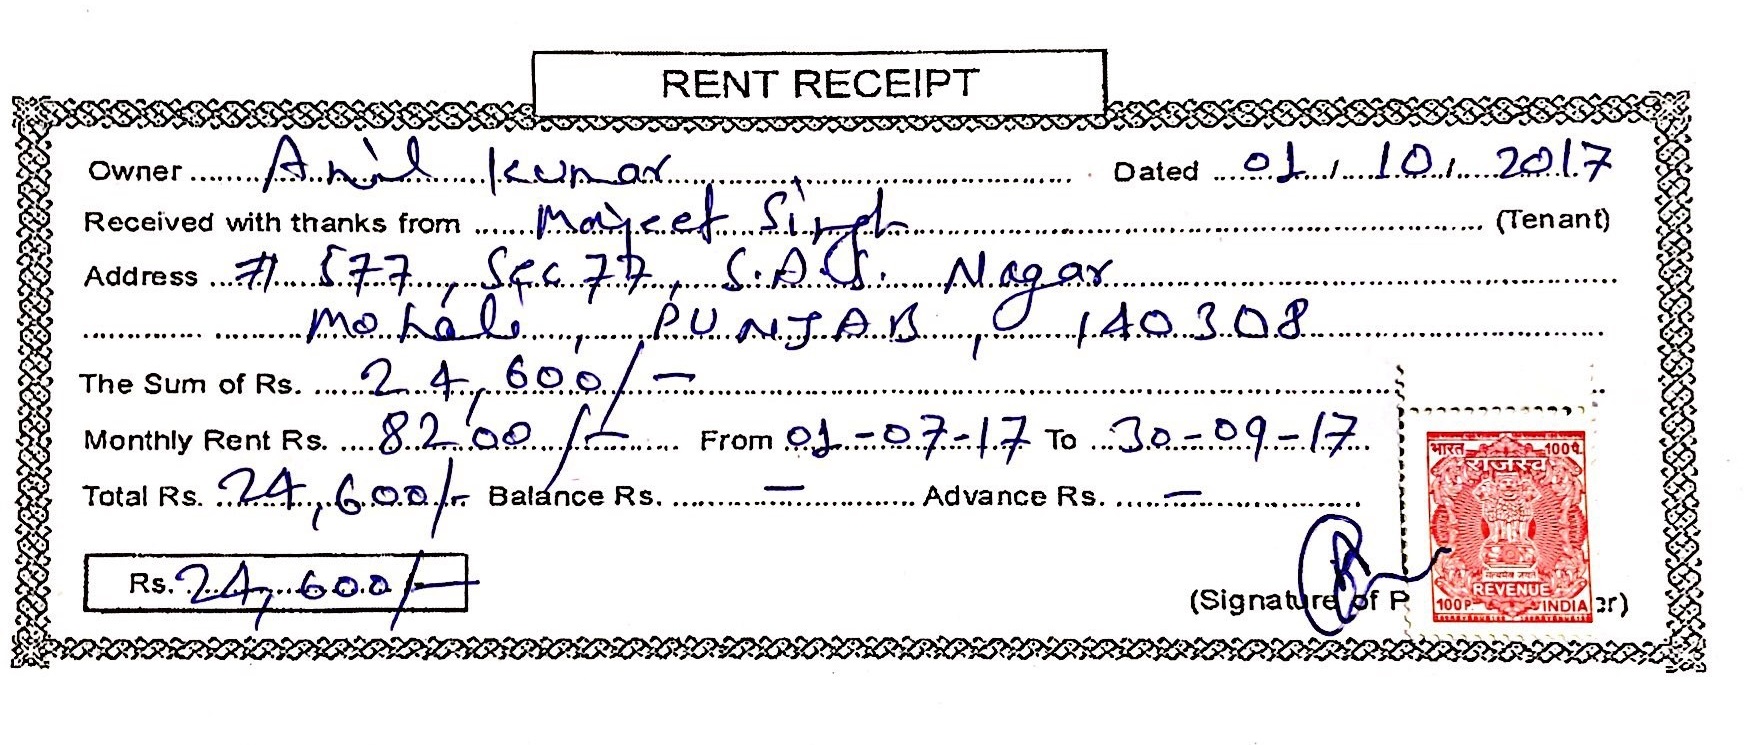 RENT RECEIPT
Owner Anil Kumar Dated 01/10/2017
Received with thanks from Manjeet Singh (Tenant)
Address # 577, Sec 77, S.A.S. Nagar
Mohali, PUNJAB, 140308
The Sum of Rs. 24,600/-
Monthly Rent Rs. 8200/- From 01-07-17 To 30-09-17
Total Rs. 24,600/- Balance Rs. - Advance Rs. -
Rs. 24,600/-
(Signature of P er)
भारत 100प.
राजस्व
सत्यमेव जयते
REVENUE
100P. INDIA